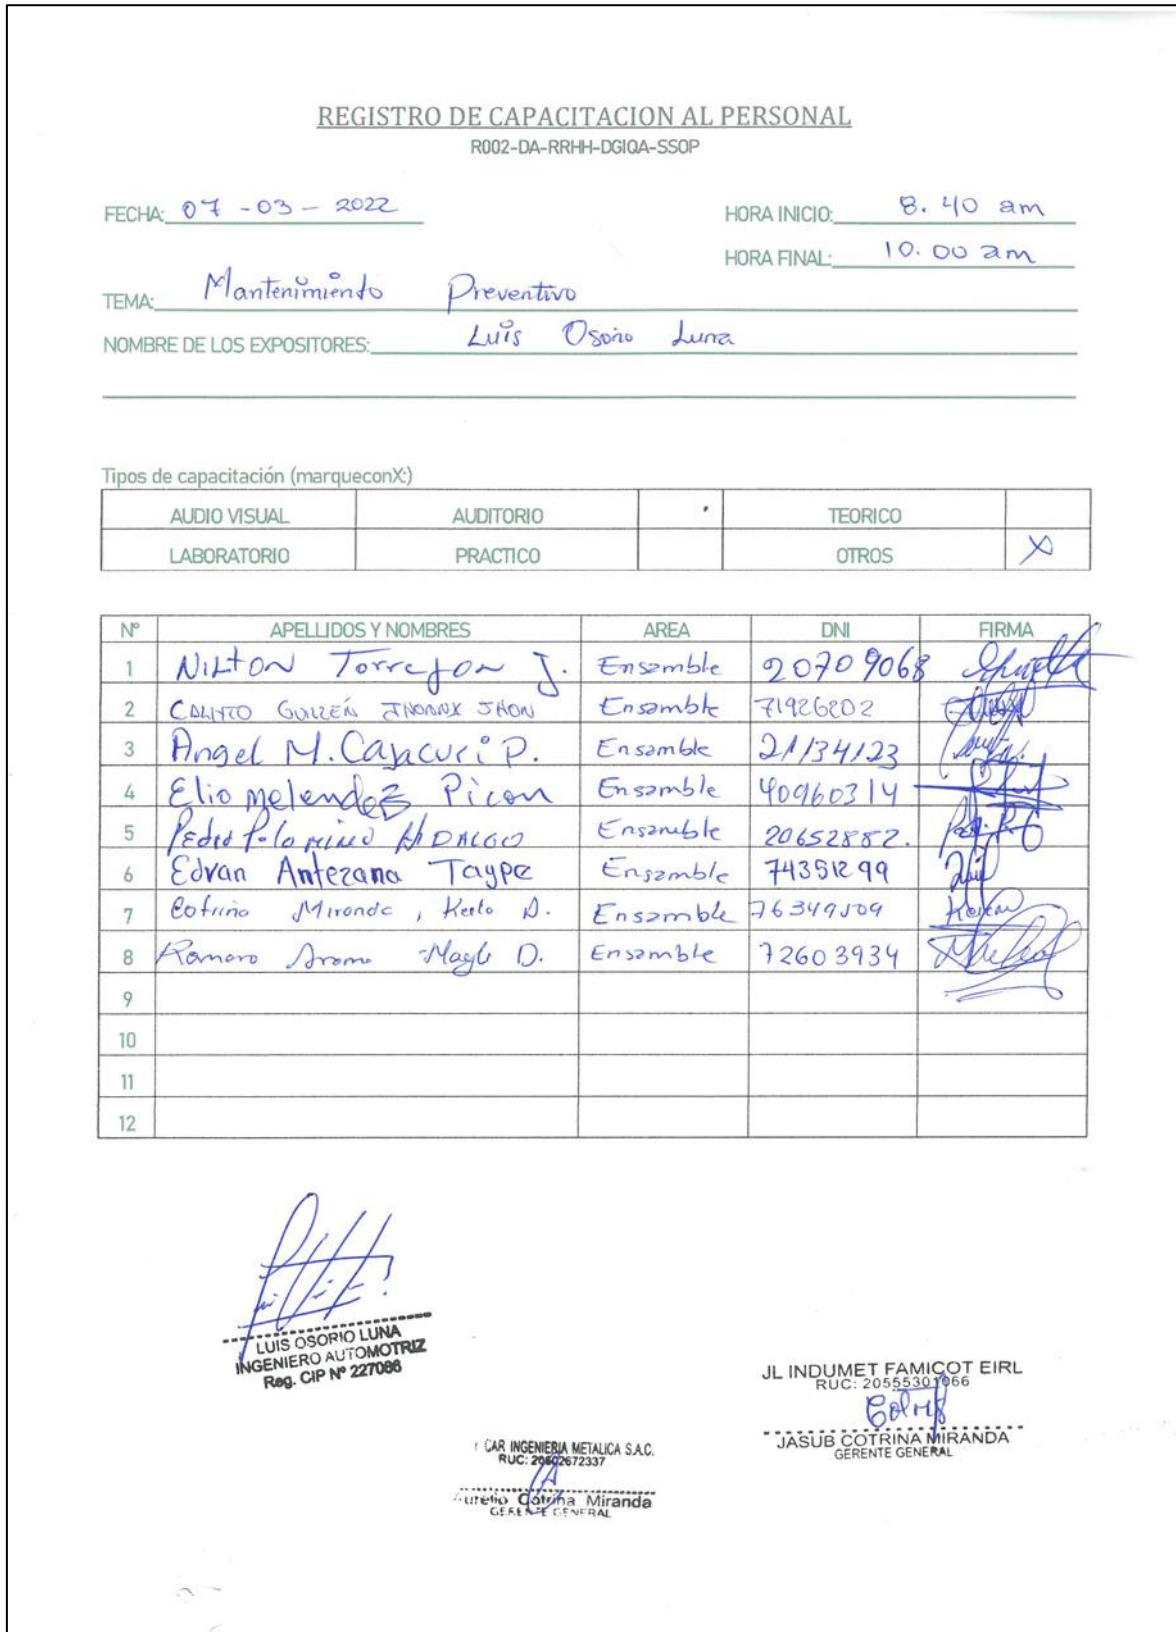 REGISTRO DE CAPACITACION AL PERSONAL
R002-DA-RRHH-DGIQA-SSOP
FECHA: 07-03-2022 HORA INICIO: 8.40 am
HORA FINAL: 10.00 am
TEMA: Mantenimiento Preventivo
NOMBRE DE LOS EXPOSITORES: Luis Osorio Luna
Tipos de capacitación (marqueconX:)
AUDIO VISUAL AUDITORIO TEORICO
LABORATORIO PRACTICO OTROS X
Nº APELLIDOS Y NOMBRES AREA DNI FIRMA
1 NILTON Torrejon J. Ensamble 20709068
2 GUILLEN JHON Ensamble 71926202
3 Angel M. Cajacuri P. Ensamble 21134123
4 Elio melendez Picon Ensamble 40960314
5 Pedro Palomino HIDALGO Ensamble 20652882.
6 Edvan Antezana Taype Ensamble 74351299
7 Cotrina Miranda, D. Ensamble 76349509
8 Romero D. Ensamble 72603934
9
10
11
12
LUIS OSORIO LUNA
INGENIERO AUTOMOTRIZ
Reg. CIP Nº 227086
JL INDUMET FAMICOT EIRL
RUC: 20555301066
JASUB COTRINA MIRANDA
GERENTE GENERAL
CAR INGENIERIA METALICA S.A.C.
RUC: 20602672337
Aurelio Cotrina Miranda
GERENTE GENERAL